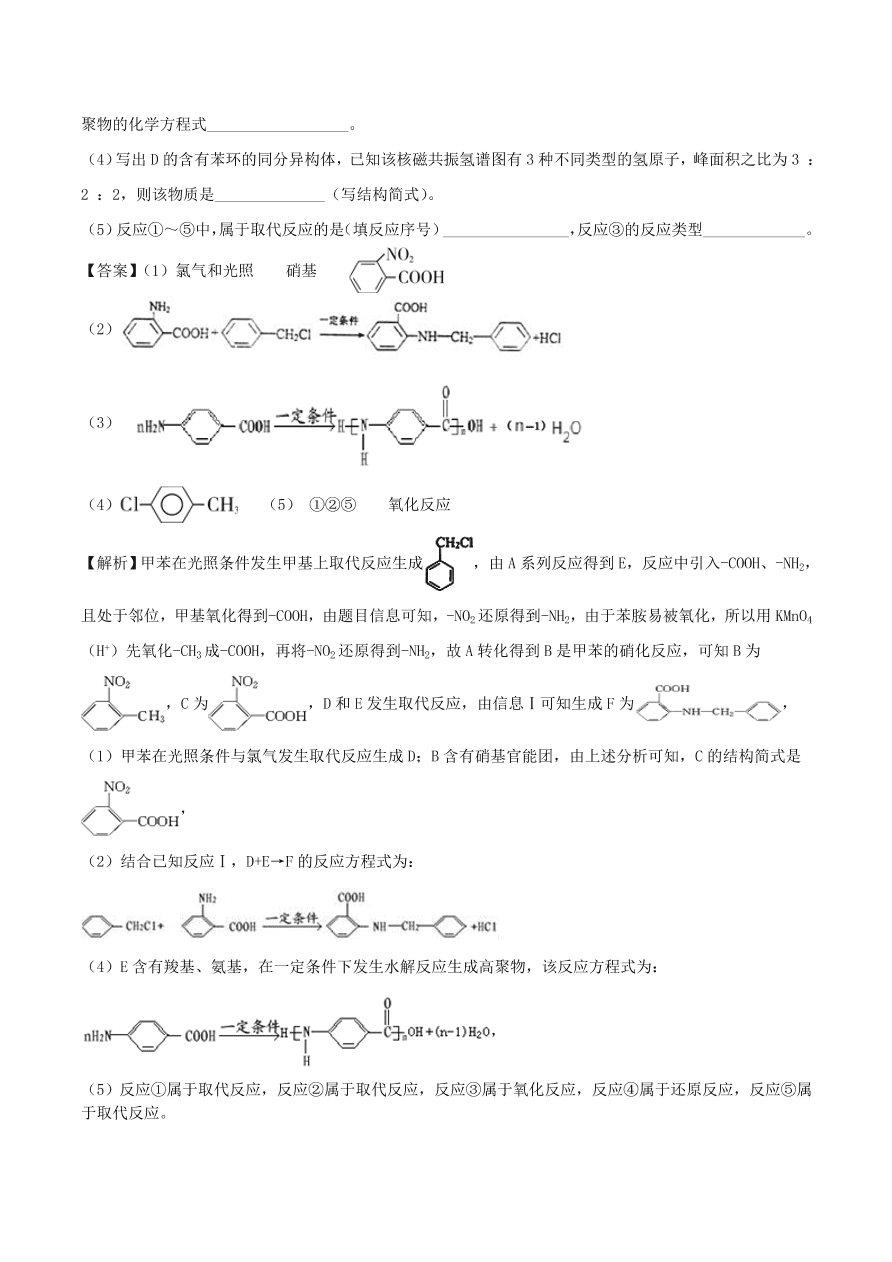 聚物的化学方程式__________________。
(4)写出 D 的含有苯环的同分异构体，已知该核磁共振氢谱图有 3 种不同类型的氢原子，峰面积之比为 3 ：
2 ：2，则该物质是______________（写结构简式）。
(5)反应①～⑤中，属于取代反应的是(填反应序号)________________，反应③的反应类型_____________。
【答案】(1) 氯气和光照 硝基 NO2 COOH
(2) NH2 COOH+ CH2Cl 一定条件 COOH NH—CH2 +HCl
(3) nH2N COOH 一定条件 H [N H C O ]n OH + (n-1) H2O
(4) Cl CH3 (5) ①②⑤ 氧化反应
【解析】甲苯在光照条件发生甲基上取代反应生成 CH2Cl ，由 A 系列反应得到 E，反应中引入-COOH、-NH2，
且处于邻位，甲基氧化得到-COOH，由题目信息可知，-NO2 还原得到-NH2，由于苯胺易被氧化，所以用 KMnO4
（H+）先氧化-CH3 成-COOH，再将-NO2 还原得到-NH2，故 A 转化得到 B 是甲苯的硝化反应，可知 B 为
NO2 CH3 ，C 为 NO2 COOH ，D 和 E 发生取代反应，由信息Ⅰ可知生成 F 为 COOH NH—CH2 ，
(1) 甲苯在光照条件与氯气发生取代反应生成 D；B 含有硝基官能团，由上述分析可知，C 的结构简式是
NO2 COOH ，
(2) 结合已知反应Ⅰ，D+E→F 的反应方程式为：
CH2Cl+ NH2 COOH 一定条件 COOH NH—CH2 +HCl
(4) E 含有羧基、氨基，在一定条件下发生水解反应生成高聚物，该反应方程式为：
nH2N COOH 一定条件 H [N H C O ]n OH+(n-1)H2O，
(5) 反应①属于取代反应，反应②属于取代反应，反应③属于氧化反应，反应④属于还原反应，反应⑤属
于取代反应。